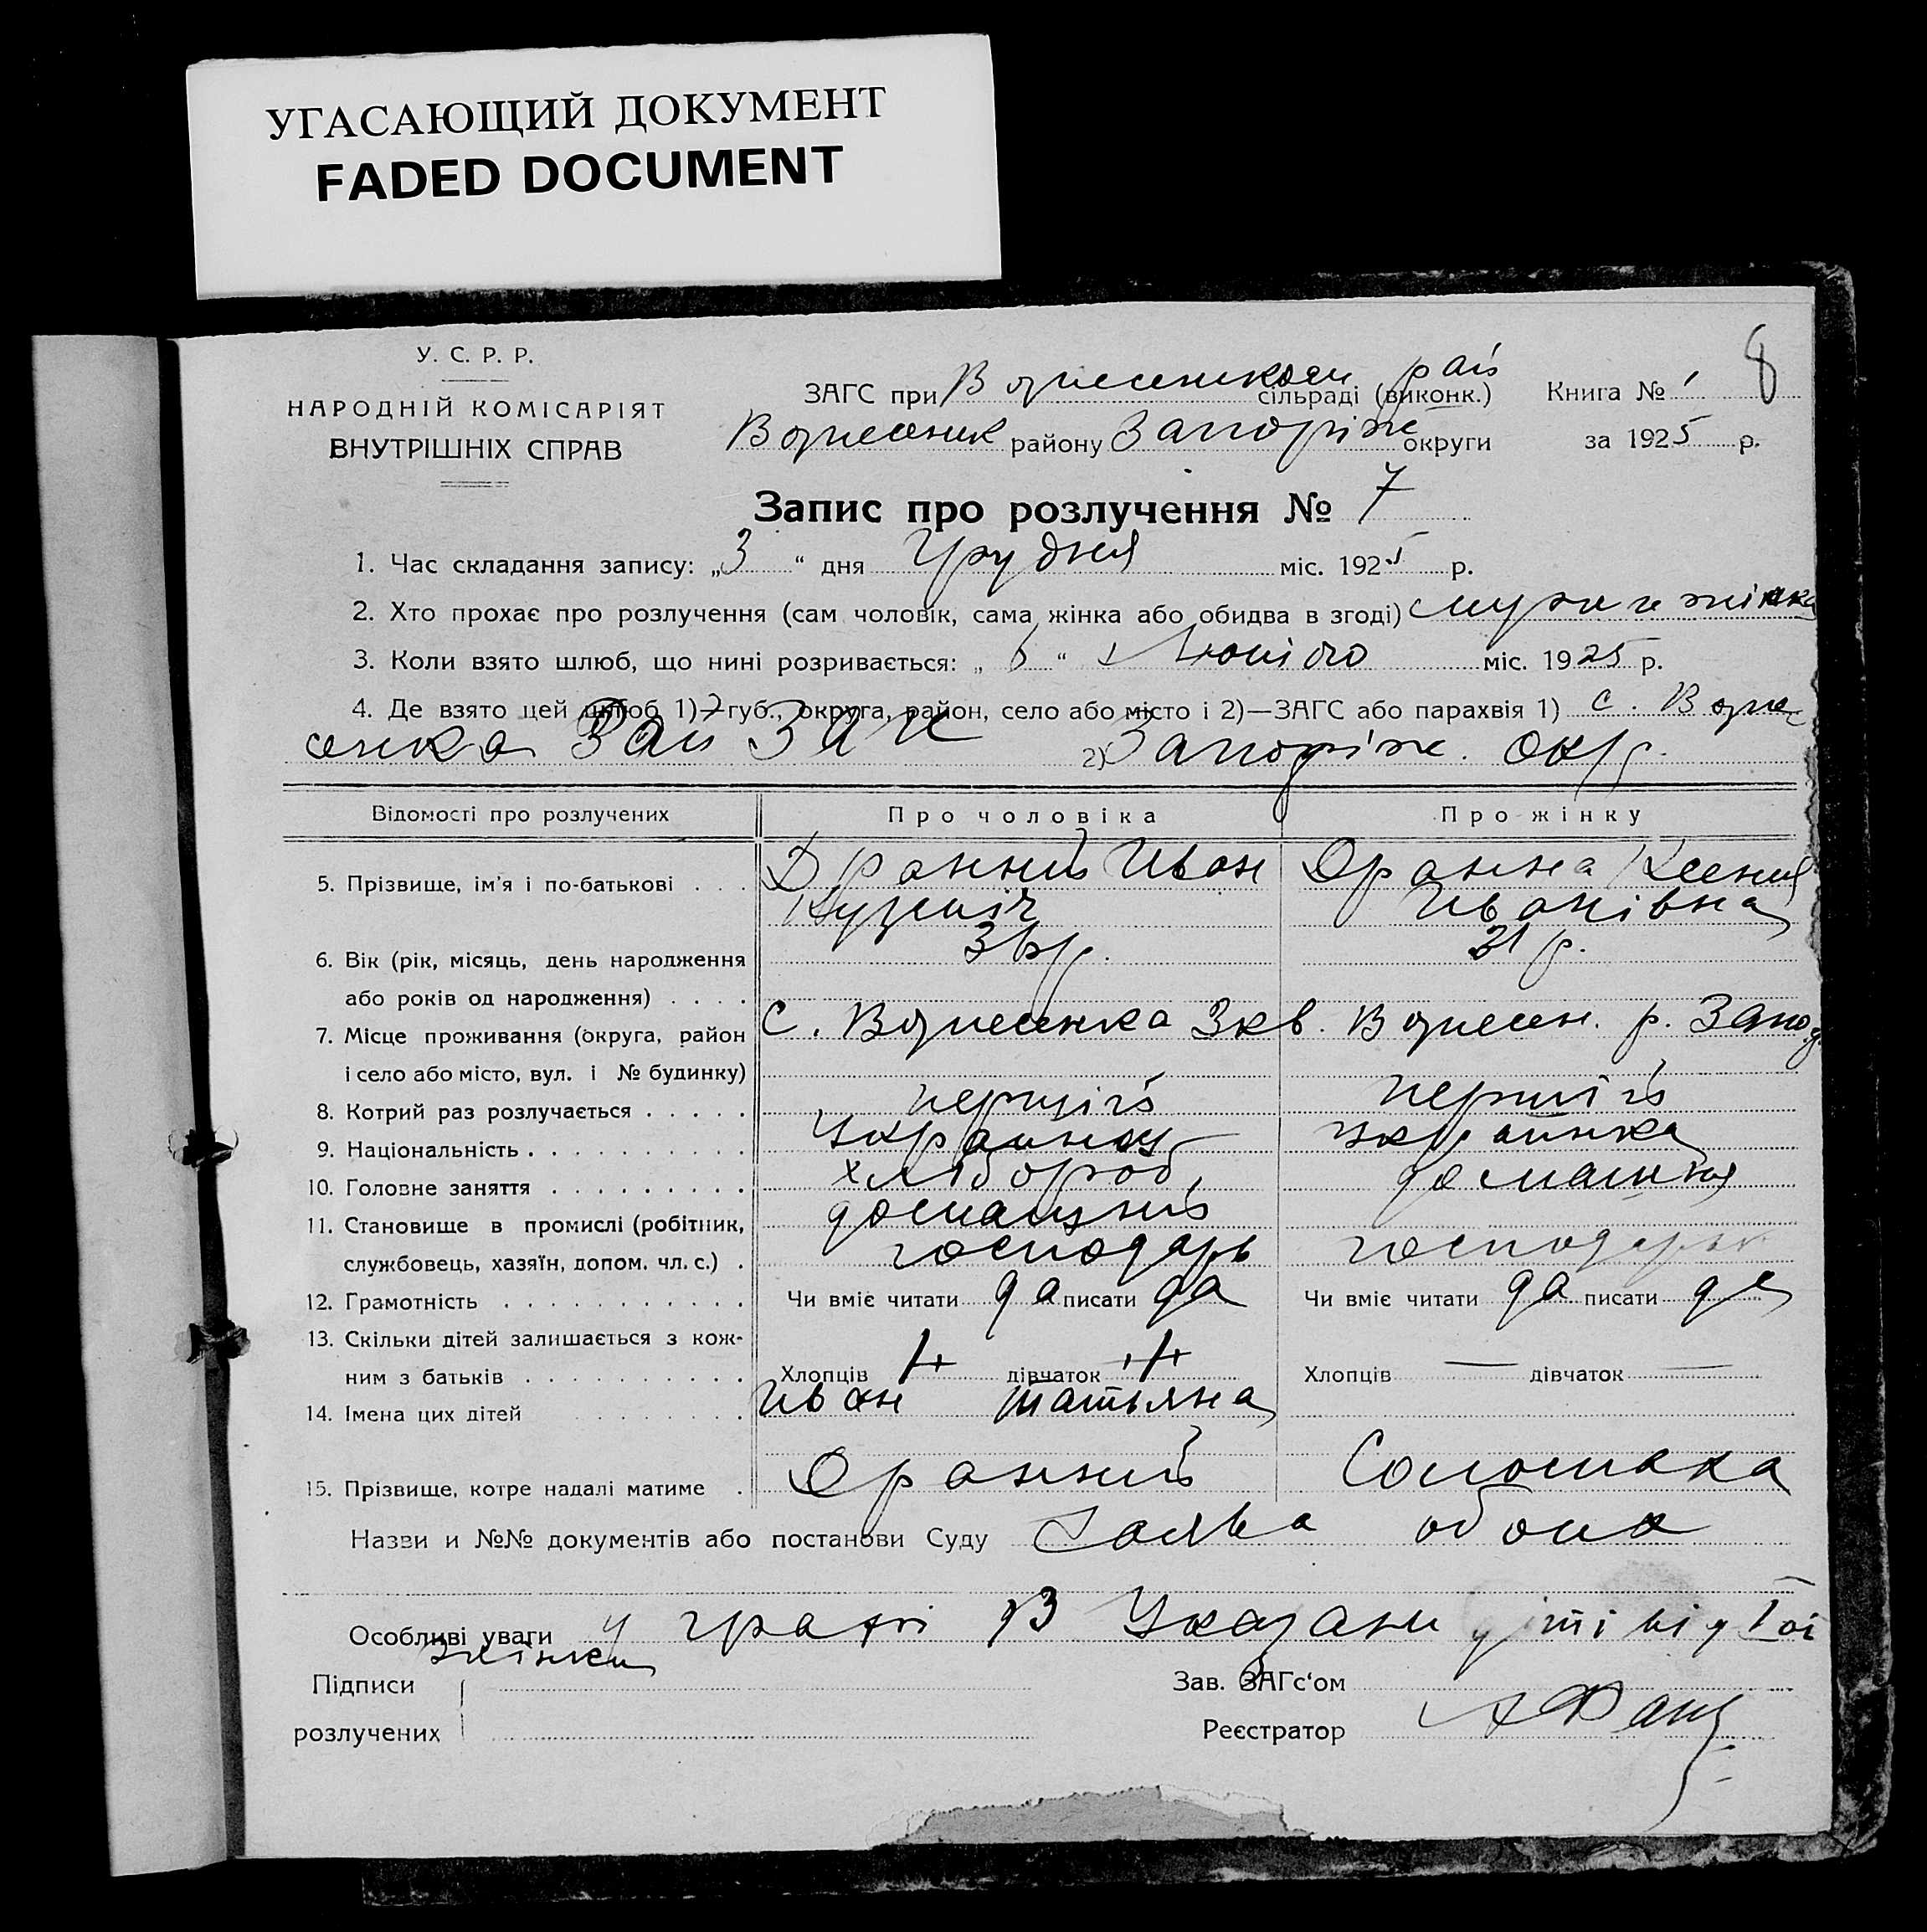 УГАСАЮЩИЙ ДОКУМЕНТ
FADED DOCUMENT
У. С. Р. Р.
НАРОДНІЙ КОМІСАРІЯТ
ВНУТРІШНІХ СПРАВ
ЗАГС при Вознесенском рай сільраді (виконк.)
Вознесенк району Запоріж округи
Книга № 1 8
за 1925 р.
Запис про розлучення № 7
1. Час складання запису: „3“ дня Грудня міс. 1925 р.
2. Хто прохає про розлучення (сам чоловік, сама жінка або обидва в згоді) муж и жінка
3. Коли взято шлюб, що нині розривається: „6“ Лютого міс. 1925 р.
4. Де взято цей шлюб 1)—губ., округа, район, село або місто і 2)—ЗАГС або парахвія 1) с. Возне-
сенка Зап 2) Запоріж. окр.
Відомості про розлучених Про чоловіка Про жінку
5. Прізвище, ім'я і по-батькові . . . Дранний Иван Дранна Ксения
Кузьміч Иванівна
6. Вік (рік, місяць, день народження 36 р. 31 р.
або років од народження) . . . .
7. Місце проживання (округа, район с. Вознесенка Зкв. Вознесен. р. Запор.
і село або місто, вул. і № будинку)
8. Котрий раз розлучається . . . . . перший перший
9. Національність . . . . . . . . . . українец українка
10. Головне заняття . . . . . . . . . хлібороб домашня
11. Становище в промислі (робітник, домашний
службовець, хазяїн, допом. чл. с.) . господарь господарка
12. Грамотність . . . . . . . . . . . Чи вміє читати да писати да Чи вміє читати да писати да
13. Скільки дітей залишається з кож-
ним з батьків . . . . . . . . . . Хлопців 1+ дівчаток +1+ Хлопців — дівчаток —
14. Імена цих дітей . . . . . . . Иван татьяна
15. Прізвище, котре надалі матиме . Дранний Соломаха
Назви и №№ документів або постанови Суду Заява обоих
Особливі уваги У графі 13 Указани діти від Iої
жінки
Підписи
розлучених
Зав. ЗАГс‘ом
Реєстратор